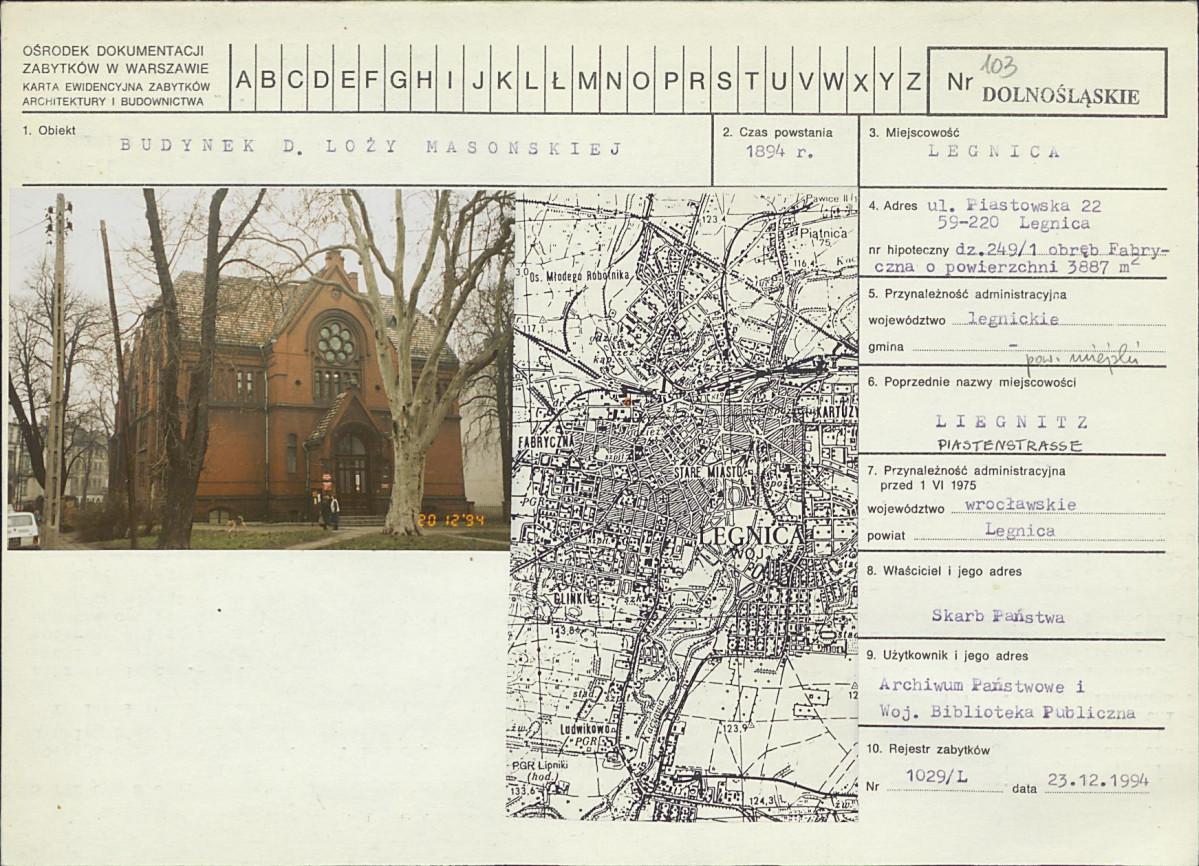 OŚRODEK DOKUMENTACJI
ZABYTKÓW W WARSZAWIE
KARTA EWIDENCYJNA ZABYTKÓW
ARCHITEKTURY I BUDOWNICTWA
A B C D E F G H I J K L Ł M N O P R S T U V W X Y Z
Nr 103
DOLNOŚLĄSKIE
1. Obiekt
BUDYNEK D. LOŻY MASONSKIEJ
2. Czas powstania
1894 r.
3. Miejscowość
LEGNICA
4. Adres ul. Piastowska 22
59-220 Legnica
nr hipoteczny dz.249/1 obręb Fabry-
czna o powierzchni 3887 m2
5. Przynależność administracyjna
województwo legnickie
gmina -
pow. miejski
6. Poprzednie nazwy miejscowości
LIEGNITZ
PIASTENSTRASSE
7. Przynależność administracyjna
przed 1 VI 1975
województwo wrocławskie
powiat Legnica
8. Właściciel i jego adres
Skarb Państwa
9. Użytkownik i jego adres
Archiwum Państwowe i
Woj. Biblioteka Publiczna
10. Rejestr zabytków
Nr 1029/L data 23.12.1994
20 12'94
Pawice II
123,4
Piątnica
75
116,4
Os. Młodego Robotnika
117,1
KARTUZY
FABRYCZNA
STARE MIASTO
PGR
LEGNICA
WOJ.
GLINKI
143,8
123,9
Ludwikowo
PGR
PGR Lipniki
(hod.)
133,6
124,3